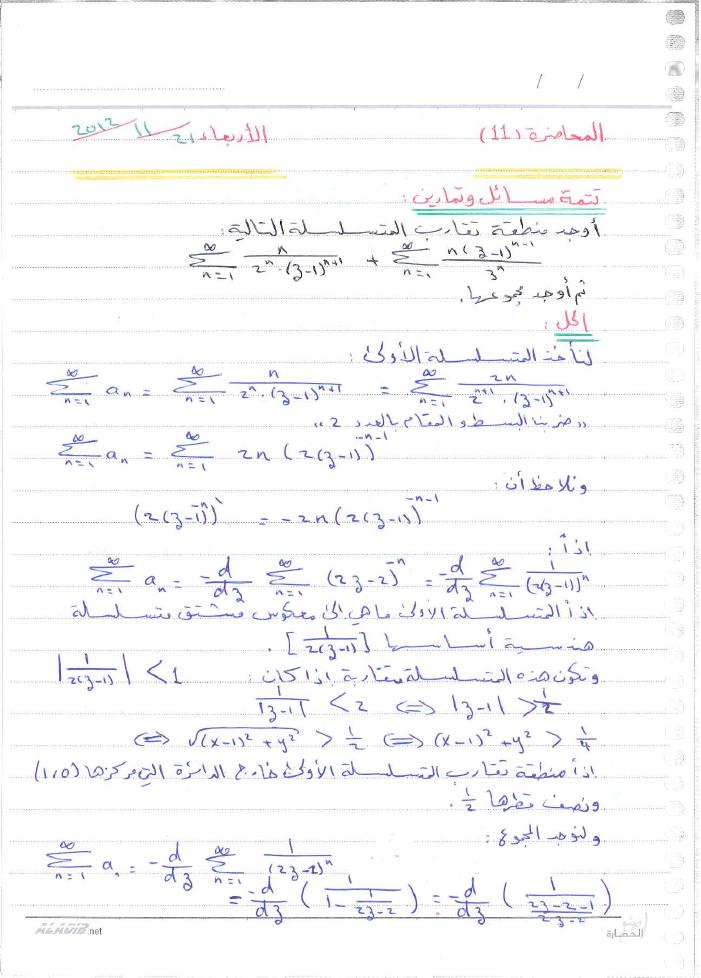 / /
المحاضرة (11) الأربعاء 21/11/2012
تتمة مسائل وتمارين:
أوجد منطقة تقارب المتسلسلة التالية:
∑_{n=1}^{∞} n/(2^n·(z-1)^{n+1}) + ∑_{n=1}^{∞} n(z-1)^{n-1}/3^n
ثم أوجد مجموعها.
الحل:
لنأخذ المتسلسلة الأولى:
∑_{n=1}^{∞} a_n = ∑_{n=1}^{∞} n/(2^n·(z-1)^{n+1}) = ∑_{n=1}^{∞} 2n/(2^{n+1}·(z-1)^{n+1})
"ضربنا البسط و المقام بالعدد 2"
∑_{n=1}^{∞} a_n = ∑_{n=1}^{∞} 2n (2(z-1))^{-n-1}
ونلاحظ أن:
(2(z-1)^{-n})` = -2n(2(z-1))^{-n-1}
إذاً:
∑_{n=1}^{∞} a_n = -d/dz ∑_{n=1}^{∞} (2z-2)^{-n} = -d/dz ∑_{n=1}^{∞} 1/(2(z-1))^n
إذاً المتسلسلة الأولى ماهي إلى معكوس مشتق متسلسلة
هندسية أساسها [1/2(z-1)].
وتكون هذه المتسلسلة متقاربة إذا كان: |1/2(z-1)| < 1
1/|z-1| < 2 ⟺ |z-1| > 1/2
⟺ √((x-1)^2 + y^2) > 1/2 ⟺ (x-1)^2 + y^2 > 1/4
إذاً منطقة تقارب المتسلسلة الأولى خارج الدائرة التي مركزها (1,0)
ونصف قطرها 1/2.
ولنوجد المجموع:
∑_{n=1}^{∞} a_n = -d/dz ∑_{n=1}^{∞} 1/(2z-2)^n
= -d/dz (1/(1 - 1/(2z-2))) = -d/dz (1/((2z-2-1)/(2z-2)))
ALAVIB.net
الحضارة